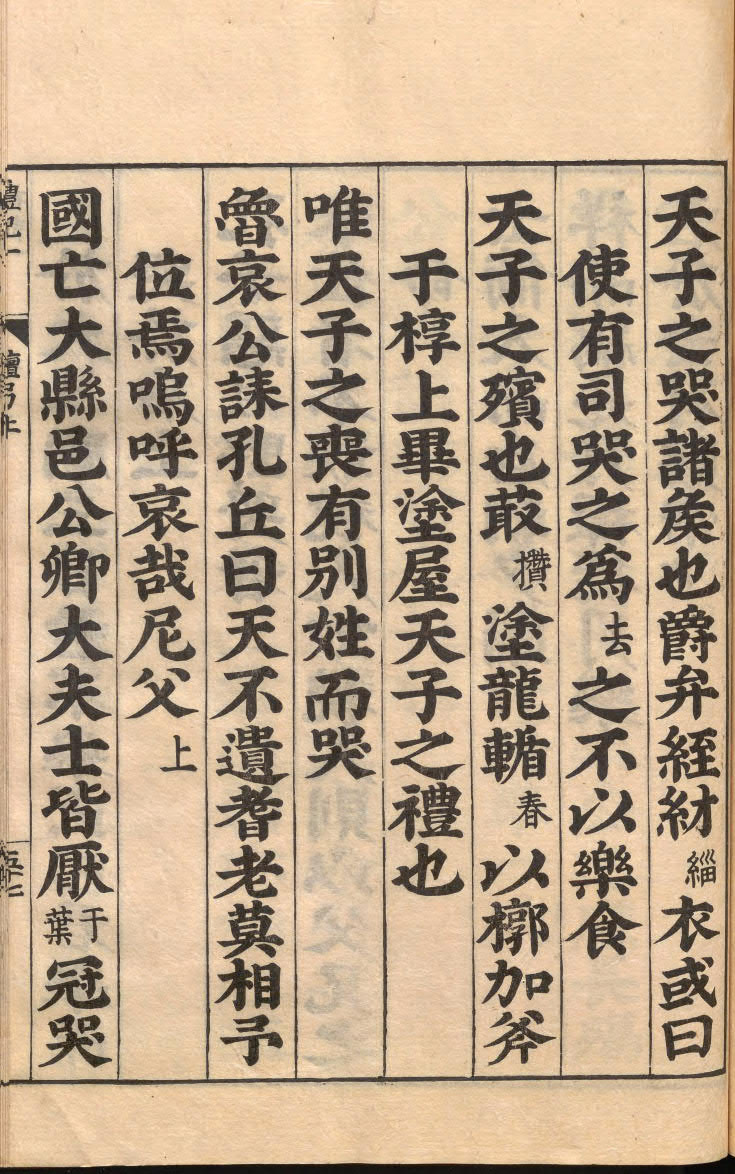 天子之哭諸矦也爵弁絰紂緇衣或曰
使有司哭之為去之不以樂食
天子之殯也菆攢塗龍輴春以槨加斧
于椁上畢塗屋天子之禮也
唯天子之喪有別姓而哭
魯哀公誄孔丘曰天不遺耆老莫相予
位焉嗚呼哀哉尼父上
國亡大縣邑公卿大夫士皆厭于葉冠哭
禮記一
檀弓上